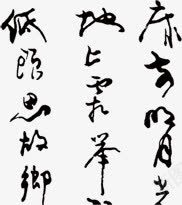 床前明月光
地上霜舉
低頭思故鄉